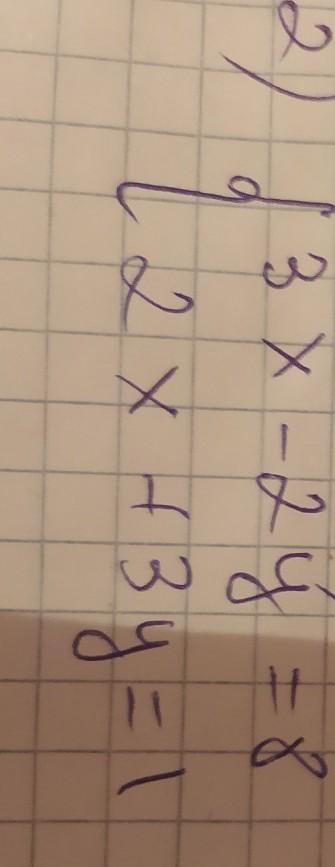 2)
{ 3x - 2y = 8
2x + 3y = 1